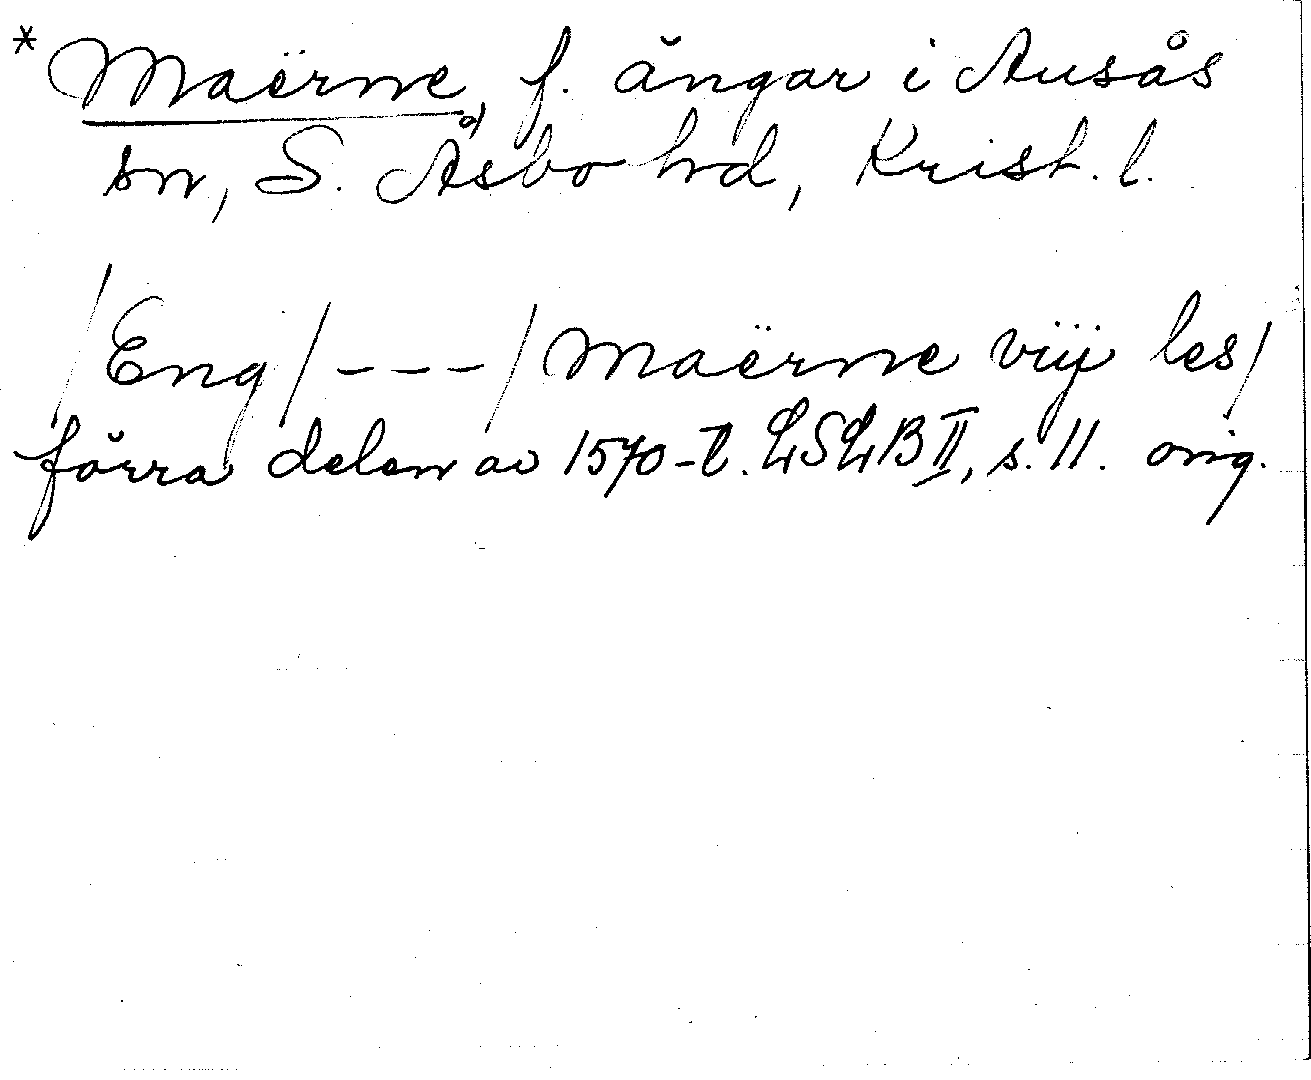 * Maërne, f. ängar i Ausås
sn, S. Åsbo hd, Krist. l.
/Eng/ --- /Maërne viij les/
förra delen av 1570-t. LSLB II, s. 11. orig.